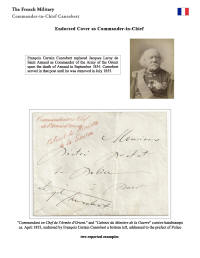 The French Military
Commander-in-Chief Canrobert
Endorsed Cover as Commander-in-Chief
François Certain Canrobert replaced Jacques Leroy de
Saint Arnaud as Commander of the Army of the Orient
upon the death of Arnaud in September 1854. Canrobert
served in that post until he was removed in July 1855.
Commandant en Chef
Monsieur
Préfet
de Police
Paris
"Commandant en Chef de l'Armée d'Orient." and "Cabinet du Ministre de la Guerre" cursive handstamps
ca. April 1855, endorsed by François Certain Canrobert at bottom left, addressed to the prefect of Police
two reported examples